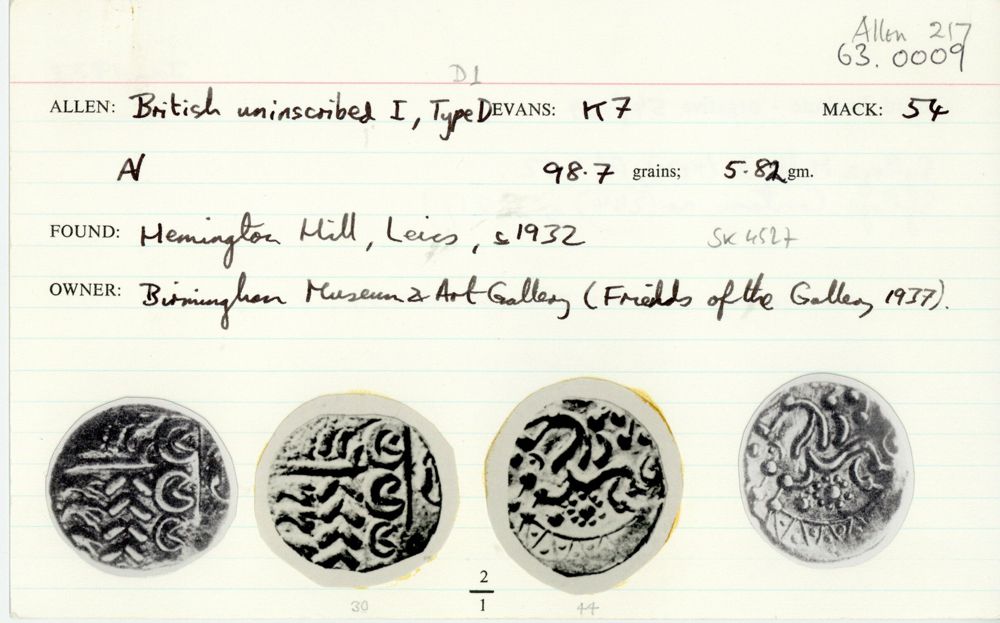 Allen 217
63.0009
D1
ALLEN: British uninscribed I, Type D EVANS: K7 MACK: 54
AV 98.7 grains; 5.82 gm.
FOUND: Hemington Mill, Leics, c1932 SK 4527
OWNER: Birmingham Museum & Art Gallery (Friends of the Gallery 1937).
2
1
30 44